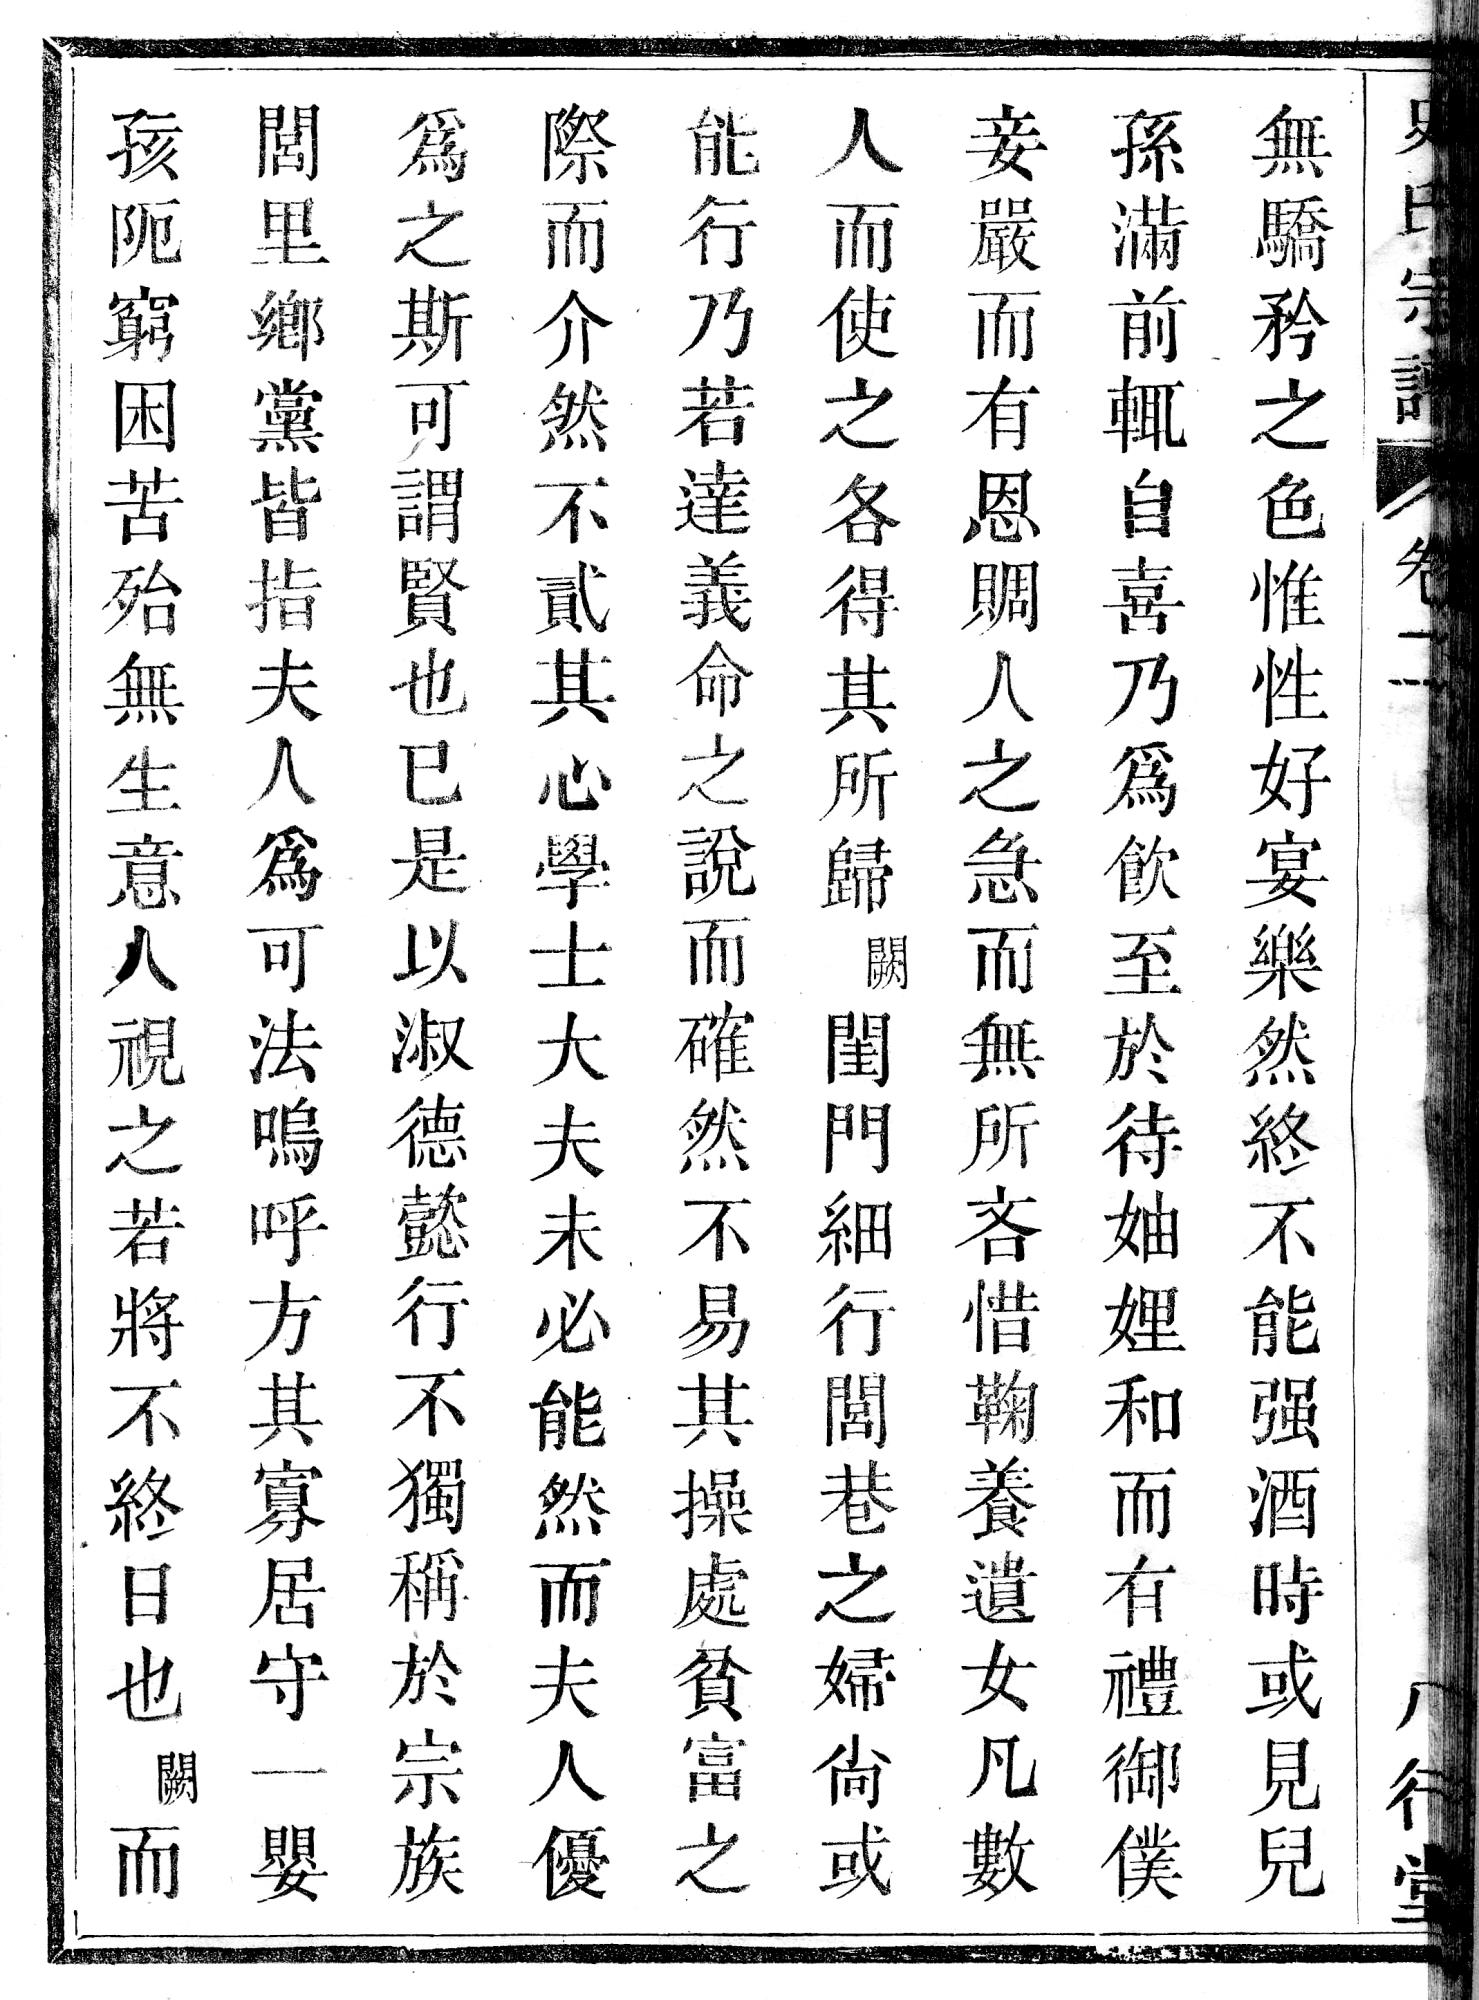 史氏宗譜 卷二 八行堂
無驕矜之色惟性好宴樂然終不能强酒時或見兒
孫滿前輒自喜乃爲飮至於待妯娌和而有禮御僕
妾嚴而有恩賙人之急而無所吝惜鞠養遺女凡數
人而使之各得其所歸闕閨門細行閭巷之婦尙或
能行乃若達義命之說而確然不易其操處貧富之
際而介然不貳其心學士大夫未必能然而夫人優
爲之斯可謂賢也已是以淑德懿行不獨稱於宗族
閭里鄉黨皆指夫人爲可法嗚呼方其寡居守一嬰
孩阨窮困苦殆無生意人視之若將不終日也闕而